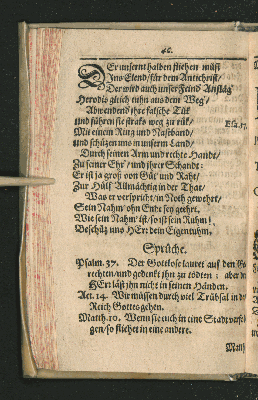 46.
DEr unsert halben fliehen müst
Ins Elend/ für dem Antichrist/
Der wird auch unser Feind Anschlåg
Herodis gleich ruhn aus dem Weg/
Abwendend ihre falsche Tük
und führen sie straks weg zu rük/
Mit einem Ring und Naseband/
Und schüzen uns in unserm Land/
Durch seinen Arm und rechte Handt/
Zu seiner Ehr/ und ihrer Schandt:
Er ist ja groß von Güt/ und Raht/
Zur Hülf Allmächtig in der That/
Was er verspricht/ in Noth gewehrt/
Sein Nahm' ohn Ende sey geehrt.
Wie sein Nahm' ist/ so ist sein Ruhm!
Beschüz uns HErr dein Eigenthum.
Sprüche.
Psalm. 37. Der Gottlose lauret auf den Ge-
rechten/ und gedenkt ihn zu tödten: aber der
HErr läßt ihn nicht in seinen Händen.
Act. 14. Wir müssen durch viel Trübsal in das
Reich Gottes gehen.
Matth. 10. Wenn sie euch in eine Stadt verfol-
gen/ so fliehet in eine andere.
Matth